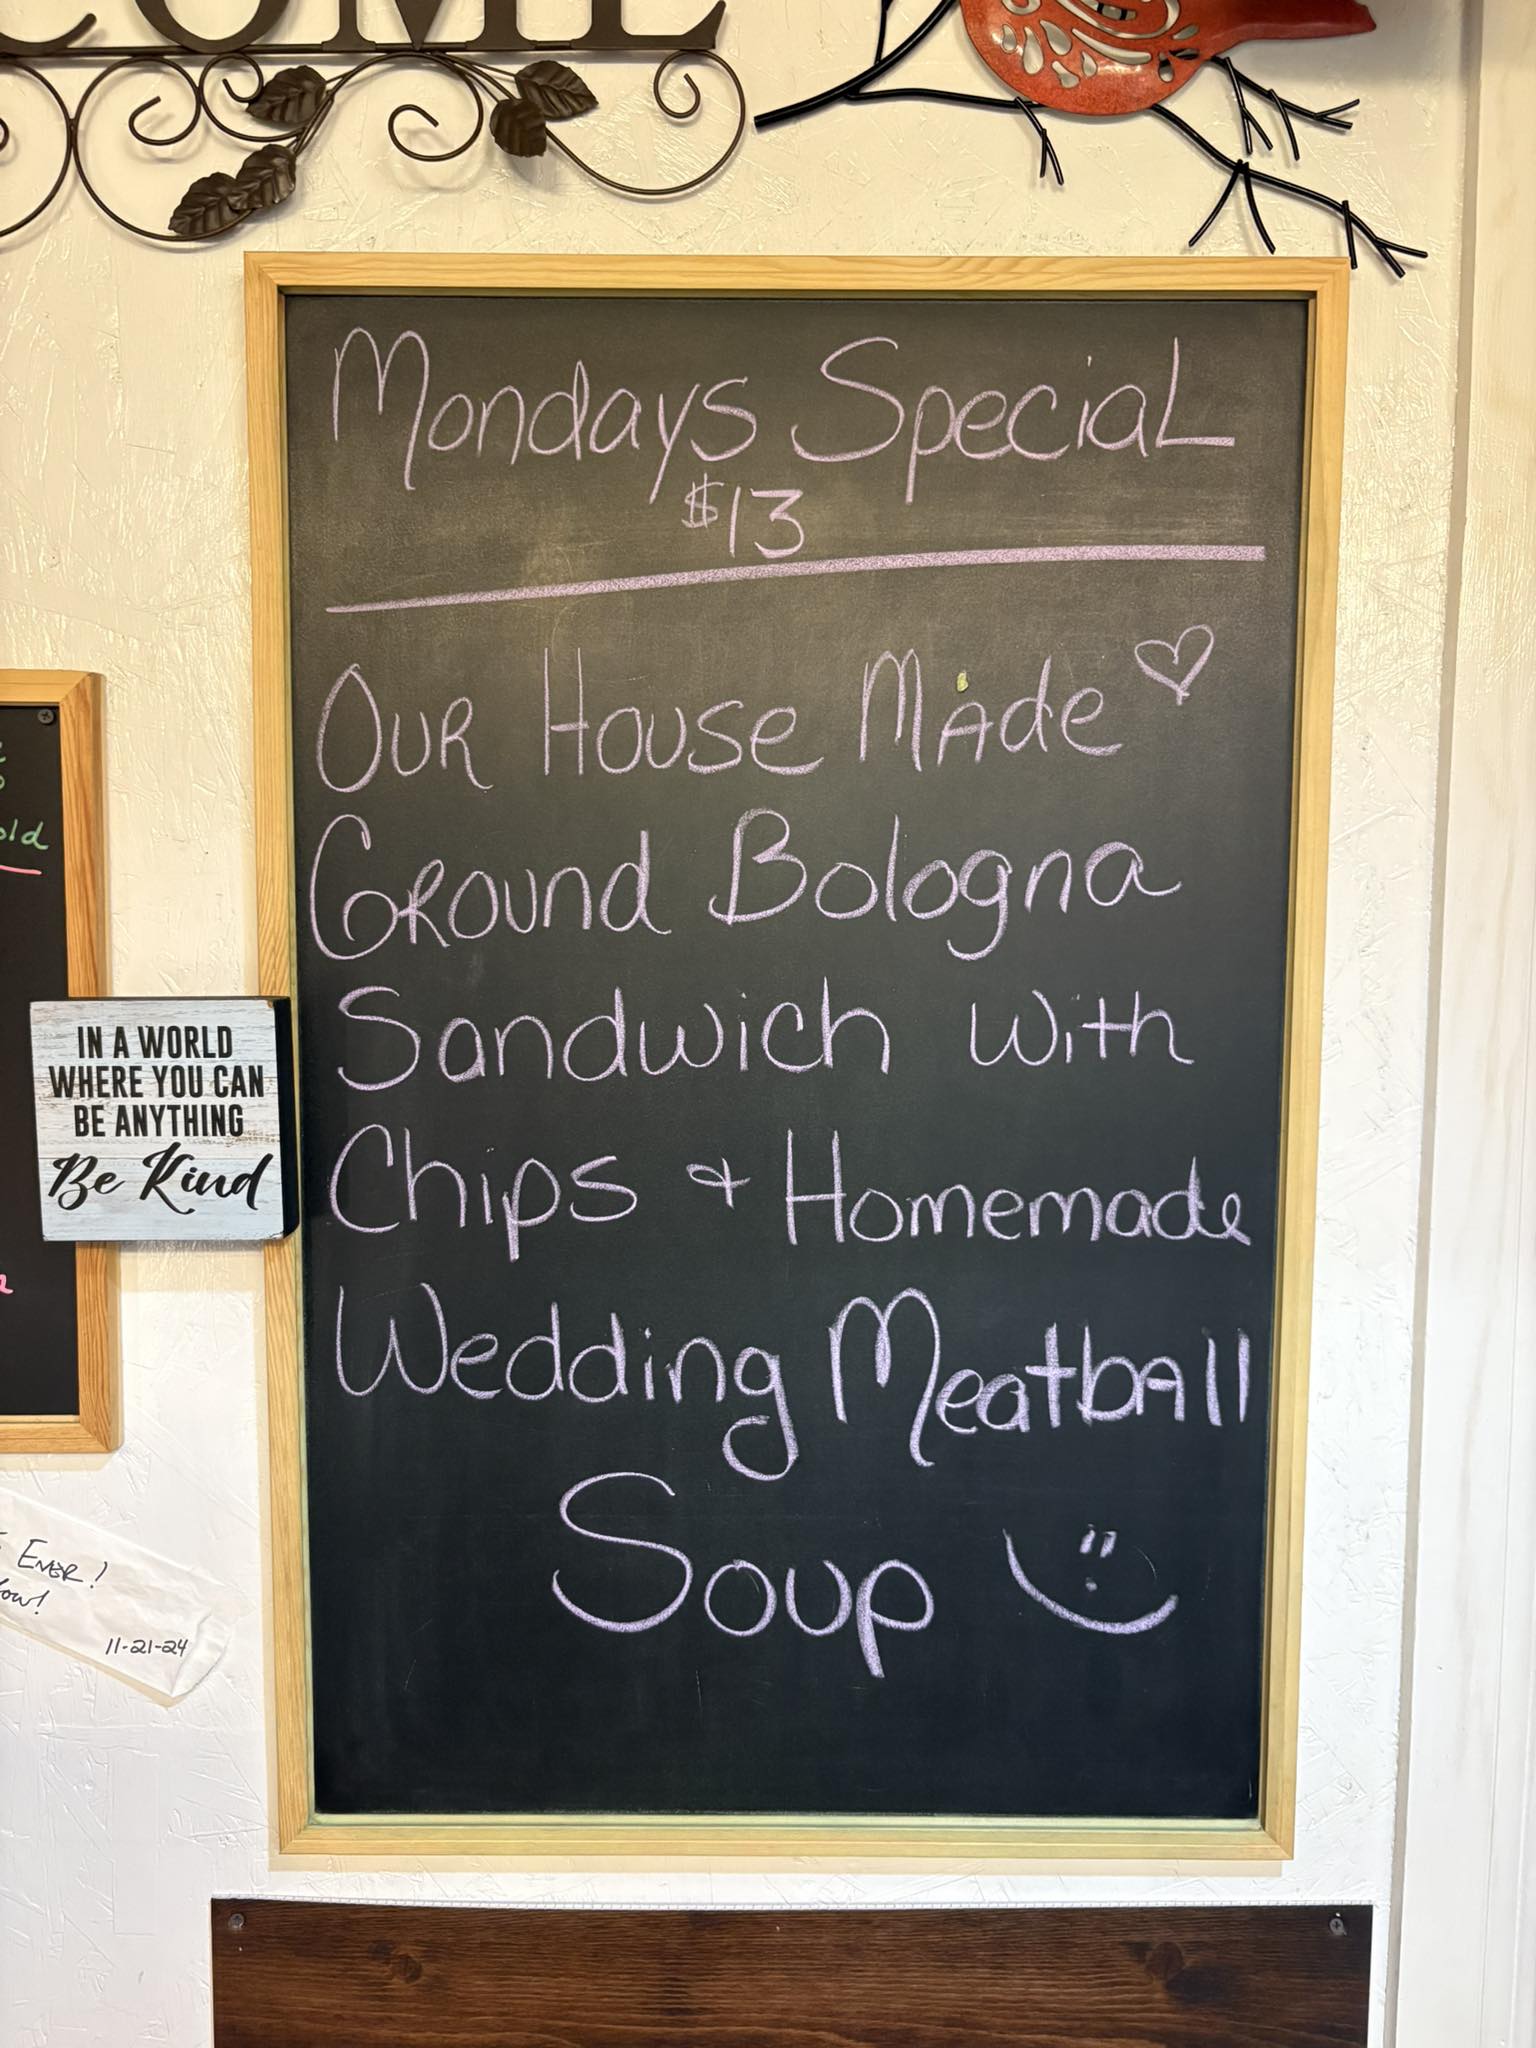 Mondays Special
$13
Our House Made
Ground Bologna
Sandwich with
Chips & Homemade
Wedding Meatball
Soup
IN A WORLD
WHERE YOU CAN
BE ANYTHING
Be Kind
Ever!
11-21-24